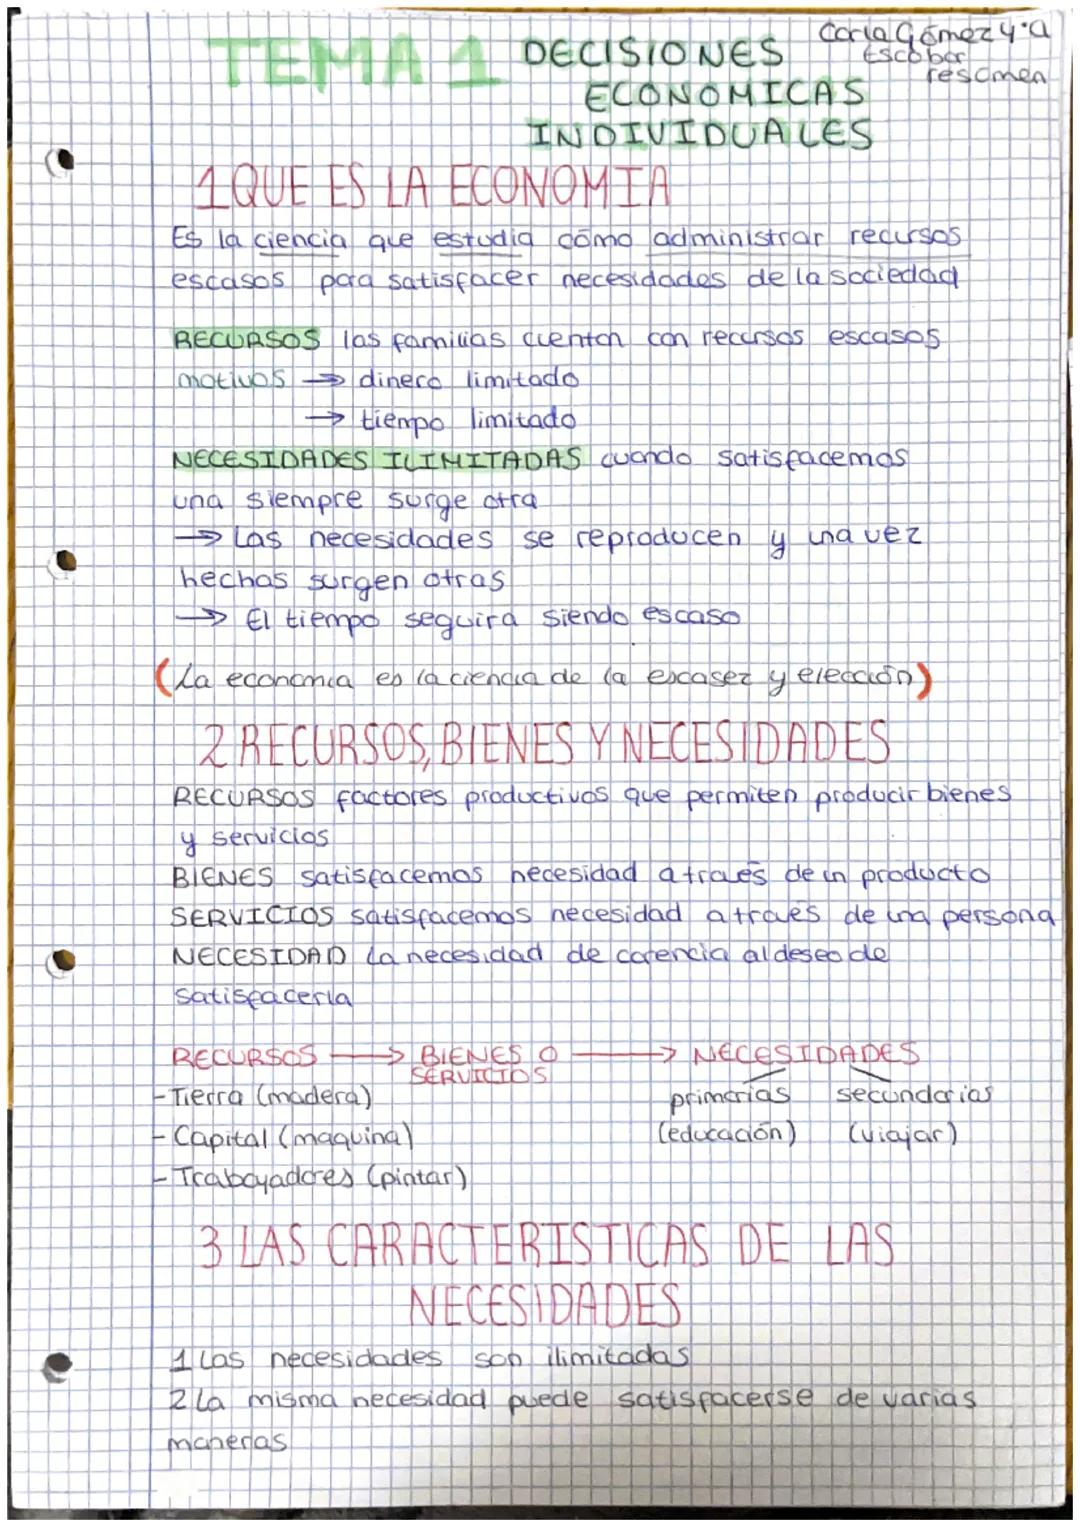 TEMA 1 DECISIONES
ECONOMICAS
INDIVIDUALES
Carla Gómez 4ºA
Escobar
resumen
1 QUE ES LA ECONOMIA
Es la ciencia que estudia cómo administrar recursos
escasos para satisfacer necesidades de la sociedad
RECURSOS las familias cuentan con recursos escasos
motivos → dinero limitado
→ tiempo limitado
NECESIDADES ILIMITADAS cuando satisfacemos
una siempre surge otra
→ Las necesidades se reproducen y una vez
hechas surgen otras
→ El tiempo seguira siendo escaso
(La economia es la ciencia de la escasez y elección)
2 RECURSOS, BIENES Y NECESIDADES
RECURSOS factores productivos que permiten producir bienes
y servicios
BIENES satisfacemos necesidad a través de un producto
SERVICIOS satisfacemos necesidad a traves de una persona
NECESIDAD La necesidad de carencia al deseo de
satisfacerla
RECURSOS → BIENES O → NECESIDADES
SERVICIOS
-Tierra (madera) primarias secundarias
-Capital (maquina) (educación) (viajar)
-Trabayadores (pintar)
3 LAS CARACTERISTICAS DE LAS
NECESIDADES
1 Las necesidades son ilimitadas
2 La misma necesidad puede satisfacerse de varias
maneras